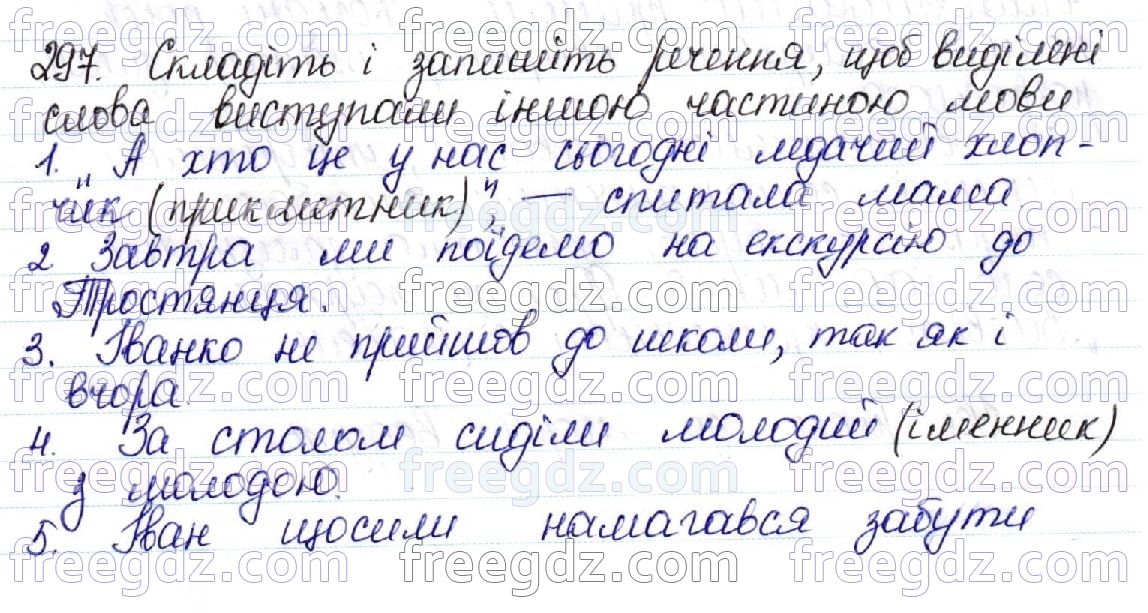 297. Складіть і запишіть речення, щоб виділені
слова виступали іншою частиною мови
1. „А хто це у нас сьогодні ледачий хлоп-
чик (прикметник)", – спитала мама
2 Завтра ми поїдемо на екскурсію до
Тростянця.
3. Іванко не прийшов до школи, так як і
вчора.
4. За столом сиділи молодий (іменник)
з молодою.
5. Іван щосили намагався забути